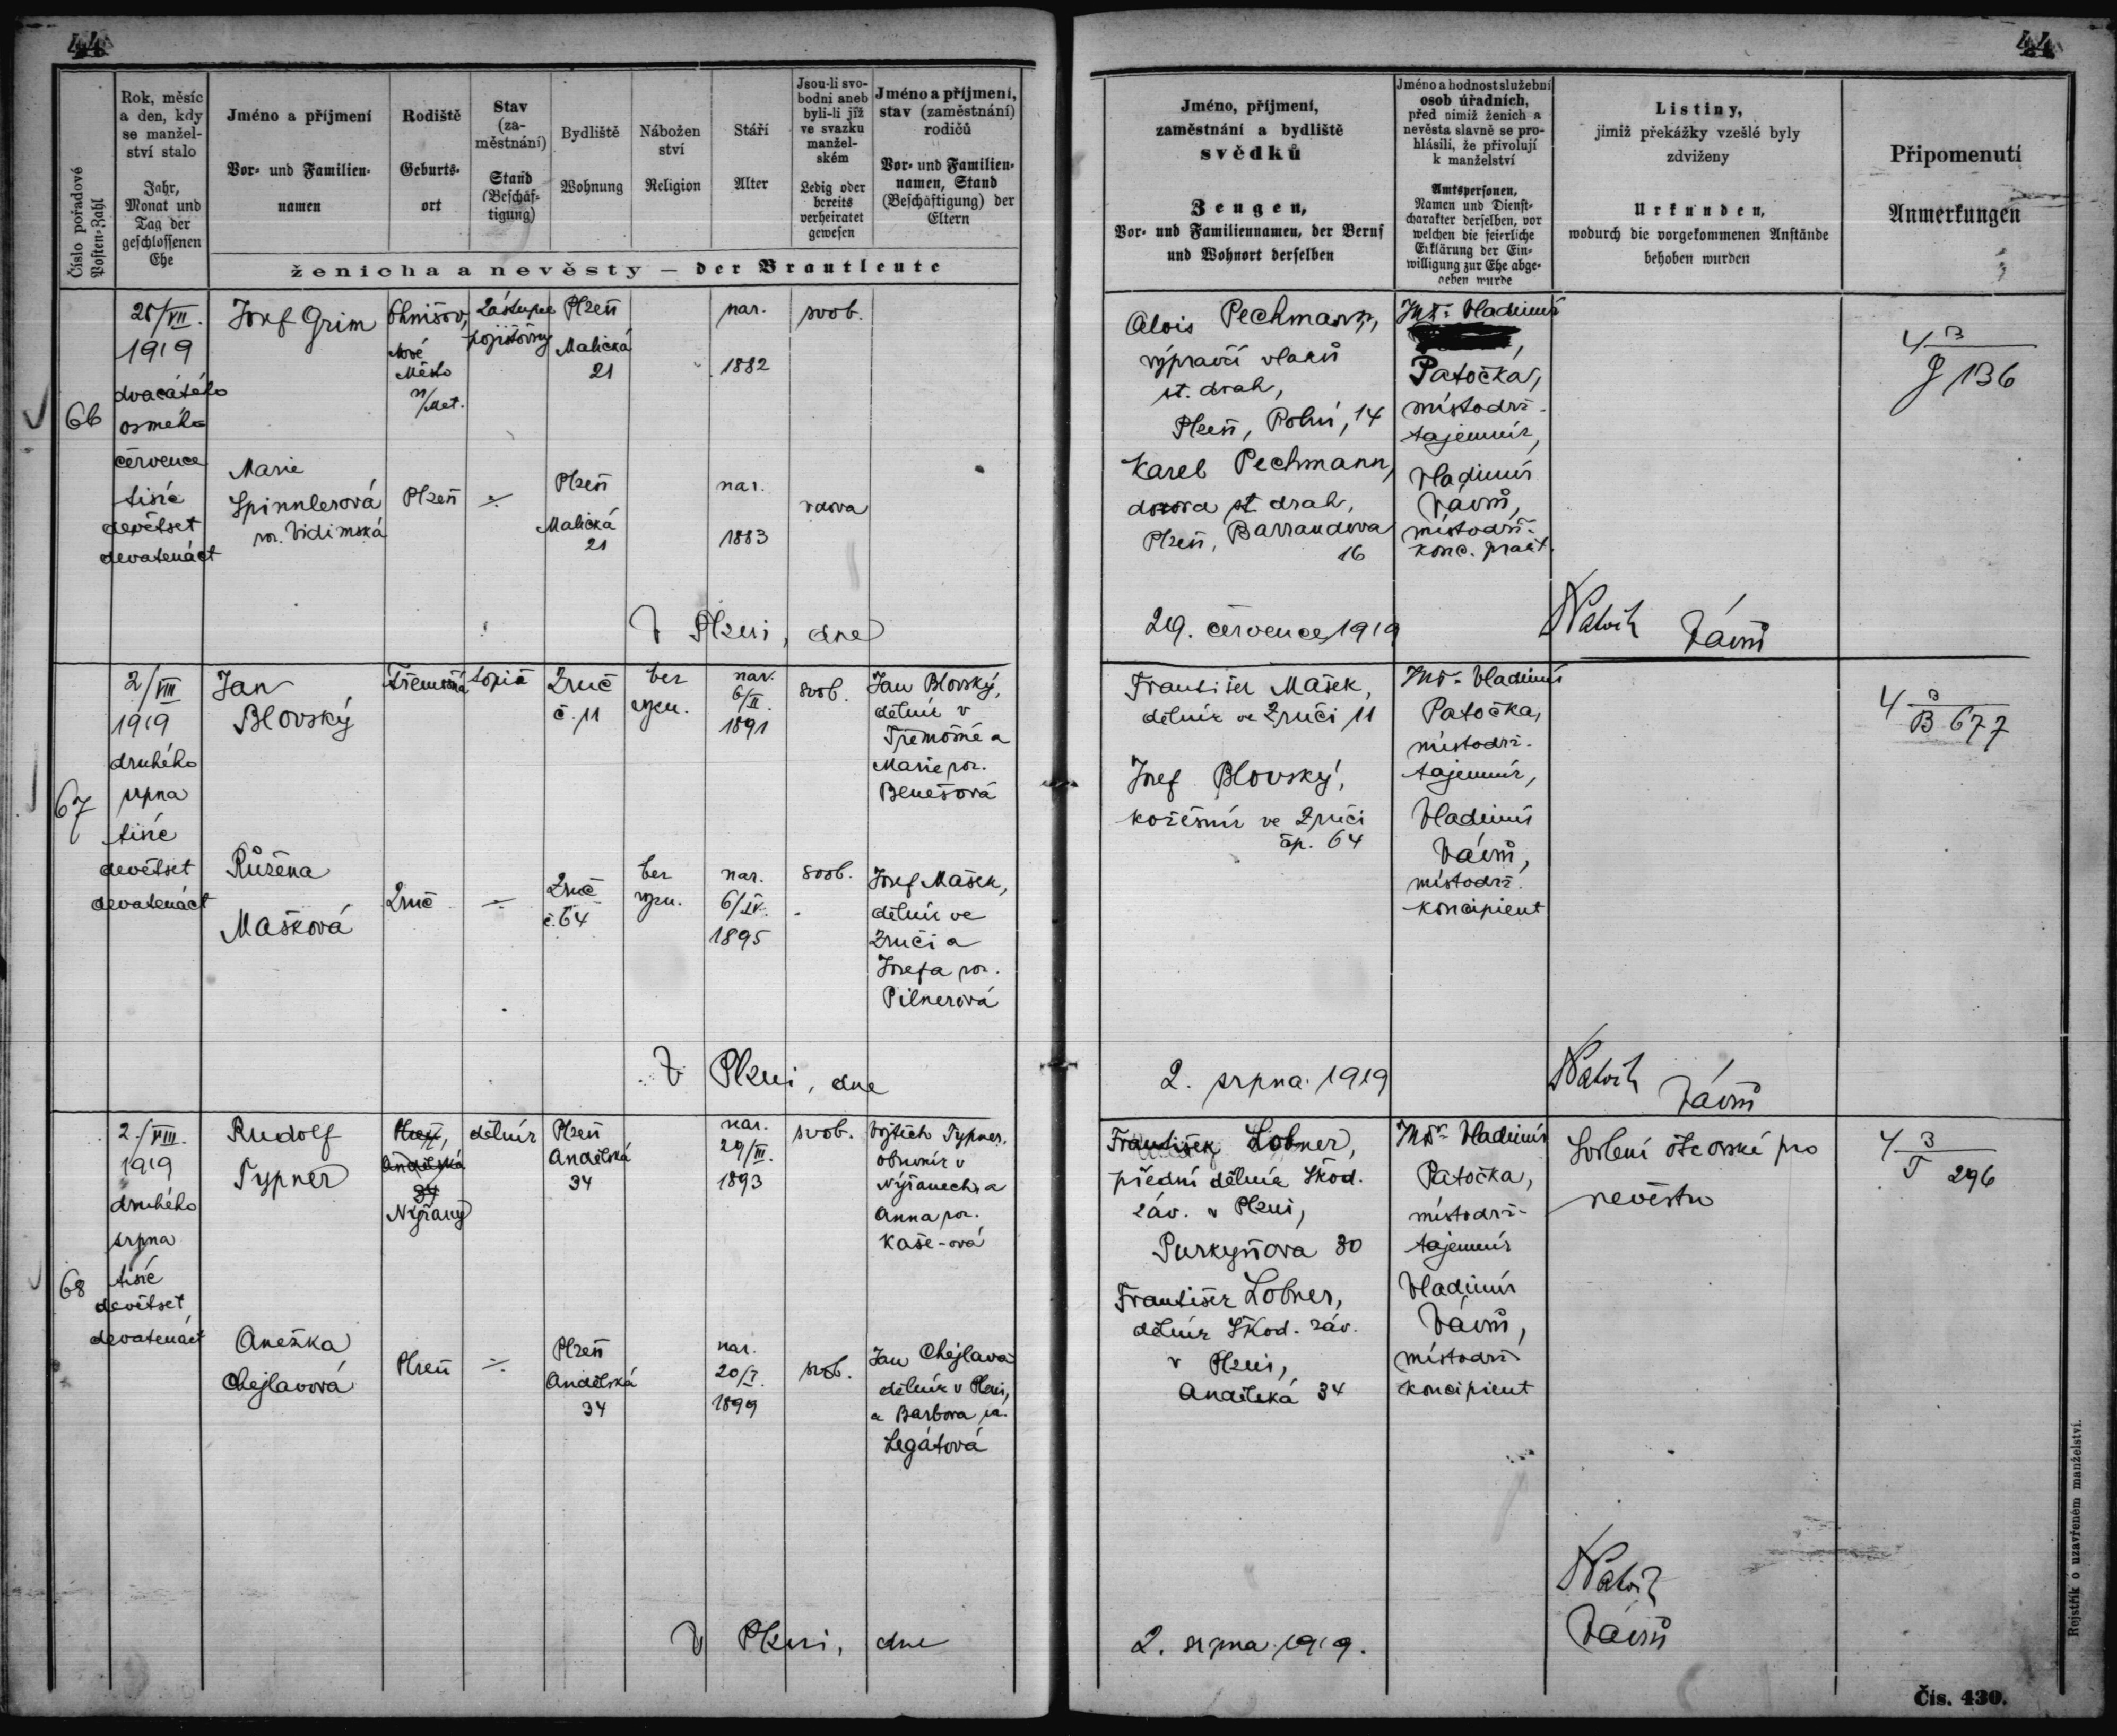 44
44
Číslo pořadové
Posten-Zahl
Rok, měsíc
a den, kdy
se manžel-
ství stalo
Jahr,
Monat und
Tag der
geschlossenen
Ehe
Jméno a příjmení
Vor- und Familien-
namen
Rodiště
Geburts-
ort
Stav
(za-
městnání)
Stand
(Beschäf-
tigung)
Bydliště
Wohnung
Nábožen
ství
Religion
Stáří
Alter
Jsou-li svo-
bodni aneb
byli-li již
ve svazku
manžel-
ském
Ledig oder
bereits
verheiratet
gewesen
Jméno a příjmení,
stav (zaměstnání)
rodičů
Vor- und Familien-
namen, Stand
(Beschäftigung) der
Eltern
ženicha a nevěsty — der Brautleute
Jméno, příjmení,
zaměstnání a bydliště
svědků
Zeugen,
Vor- und Familiennamen, der Beruf
und Wohnort derselben
Jméno a hodnost služební
osob úřadních,
před nimiž ženich a
nevěsta slavně se pro-
hlásili, že přivolují
k manželství
Amtspersonen,
Namen und Dienst-
charakter derselben, vor
welchen die feierliche
Erklärung der Ein-
willigung zur Ehe abge-
geben wurde
Listiny,
jimiž překážky vzešlé byly
zdviženy
Urkunden,
wodurch die vorgekommenen Anstände
behoben wurden
Připomenutí
Anmerkungen
66
28/VII.
1919
dvacátého
osmého
července
tisíc
devětset
devatenáct
Josef Grim
Ohnišov,
Nové
Město
n/Met.
zástupce
pojišťovny
Plzeň
Malická
21
nar.
1882
svob.
Marie
Spinnlerová
roz. Vidimská
Plzeň
÷
Plzeň
Malická
21
nar.
1883
vdova
Alois Pechmann,
výpravčí vlaků
st. drah,
Plzeň, Polní, 14
Karel Pechmann,
dozorce st. drah,
Plzeň, Barrandova
16
JUDr. Vladimír
Patočka,
místodrž.
tajemník,
Vladimír
Vávrů,
místodrž.
konc. prakt.
4 3
G 136
V Plzni, dne
29. července 1919
Patočk Vávrů
67
2/VIII
1919
druhého
srpna
tisíc
devětset
devatenáct
Jan
Blovský
Třemošná
topič
Zruč
č. 11
bez
vyzn.
nar.
6/II.
1891
svob.
Jan Blovský,
dělník v
Třemošné a
Marie roz.
Benešová
Růžena
Mašková
Zruč
÷
Zruč
č. 64
bez
vyzn.
nar.
6/IV.
1895
svob.
Josef Mašek,
dělník ve
Zruči a
Josefa roz.
Pilnerová
František Mašek,
dělník ve Zruči 11
Josef Blovský,
kožešník ve Zruči
čp. 64
JUDr. Vladimír
Patočka,
místodrž.
tajemník,
Vladimír
Vávrů,
místodrž.
koncipient
4 3
B 677
V Plzni, dne
2. srpna 1919
Patočk Vávrů
68
2./VIII.
1919
druhého
srpna
tisíc
devětset
devatenáct
Rudolf
Typner
Plzeň,
Andělská
34
Nýřany
dělník
Plzeň
Andělská
34
nar.
29/III.
1893
svob.
Vojtěch Typner,
obuvník v
Nýřanech a
Anna roz.
Kaše-ová
Anežka
Chejlavová
Plzeň
÷
Plzeň
Andělská
34
nar.
20/I.
1899
svob.
Jan Chejlava
dělník v Plzni,
a Barbora roz.
Legátová
František Lobner,
přední dělník Škod.
záv. v Plzni,
Purkyňova 30
František Lobner,
dělník Škod. záv.
v Plzni,
Andělská 34
JUDr. Vladimír
Patočka,
místodrž-
tajemník
Vladimír
Vávrů,
místodrž
koncipient
Svolení otcovské pro
nevěstu
4 3
T 296
V Plzni, dne
2. srpna 1919.
Patočk
Vávrů
Rejstřík o uzavřeném manželství.
Čís. 430.